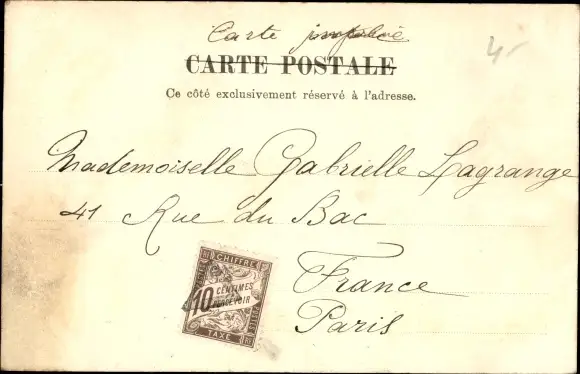 Carte imprimée
4-
CARTE POSTALE
Ce côté exclusivement réservé à l'adresse.
Mademoiselle Gabrielle Lagrange
41 Rue du Bac
France
Paris
CHIFFRE
10 CENTIMES
PERCEVOIR
TAXE
RF